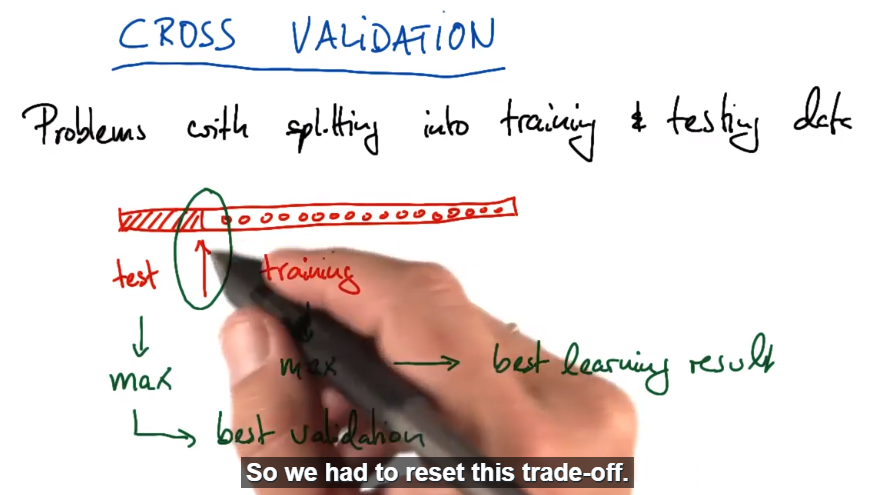 CROSS VALIDATION
Problems with splitting into training & testing data
test
training
max
max → best learning result
best validation
So we had to reset this trade-off.